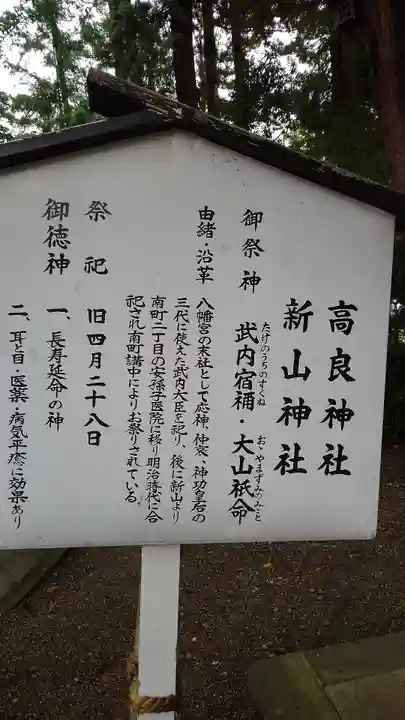 高良神社
新山神社
御祭神　武内宿禰・大山祇命
たけのうちのすくね
おゝやまずみのみこと
由緒・沿革　八幡宮の末社として応神、仲哀、神功皇后の
三代に使えた武内大臣を祀り、後に新山より
南町二丁目の安孫子医院に移り明治時代に合
祀され南町講中によりお祭りされている。
祭祀　旧四月二十八日
御徳神　一、長寿延命の神
二、耳・目・医薬・病気平癒に効果あり